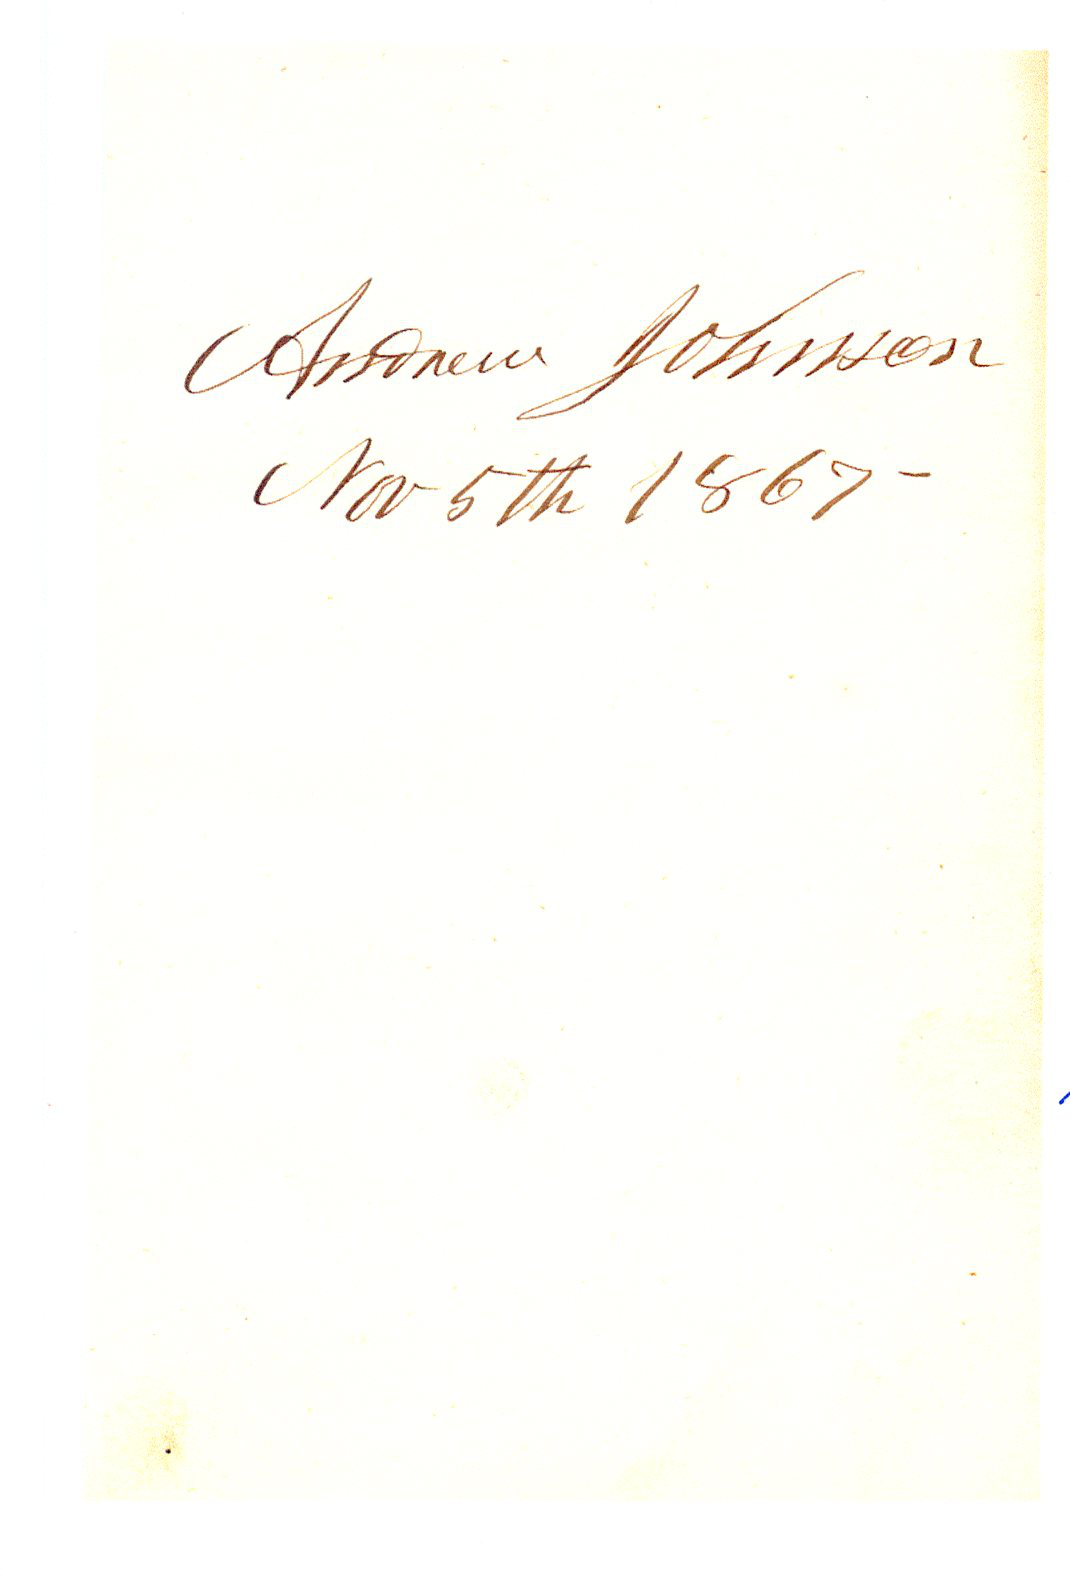 Andrew Johnson
Nov 5th 1867-